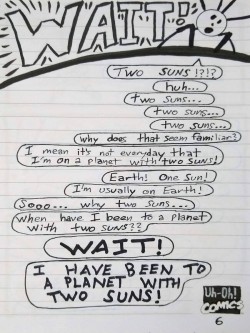 WAIT!
TWO SUNS!?!?
huh...
two suns...
two suns...
two suns...
why does that seem familiar?
I mean it's not everyday that
I'm on a planet with two suns!
Earth! One Sun!
I'm usually on Earth!
Sooo... why two suns...
When have I been to a planet
with two suns??
WAIT!
I HAVE BEEN TO
A PLANET WITH
TWO SUNS!
Uh-Oh!
COMICS
6